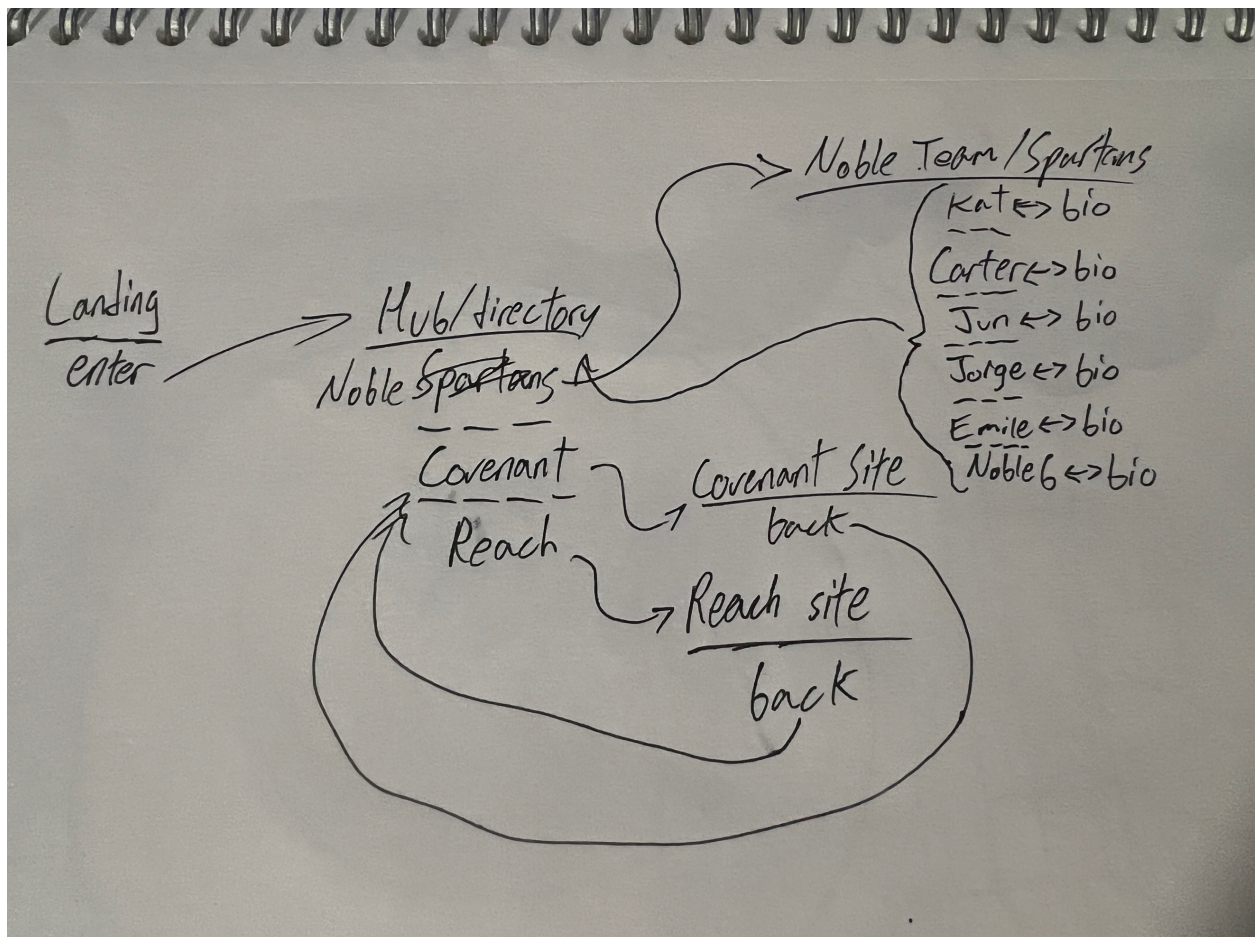 Landing
enter
Hub/directory
Noble Spartans
Covenant
Reach
Noble Team/Spartans
Kat <-> bio
Carter <-> bio
Jun <-> bio
Jorge <-> bio
Emile <-> bio
Noble 6 <-> bio
Covenant Site
back
Reach site
back